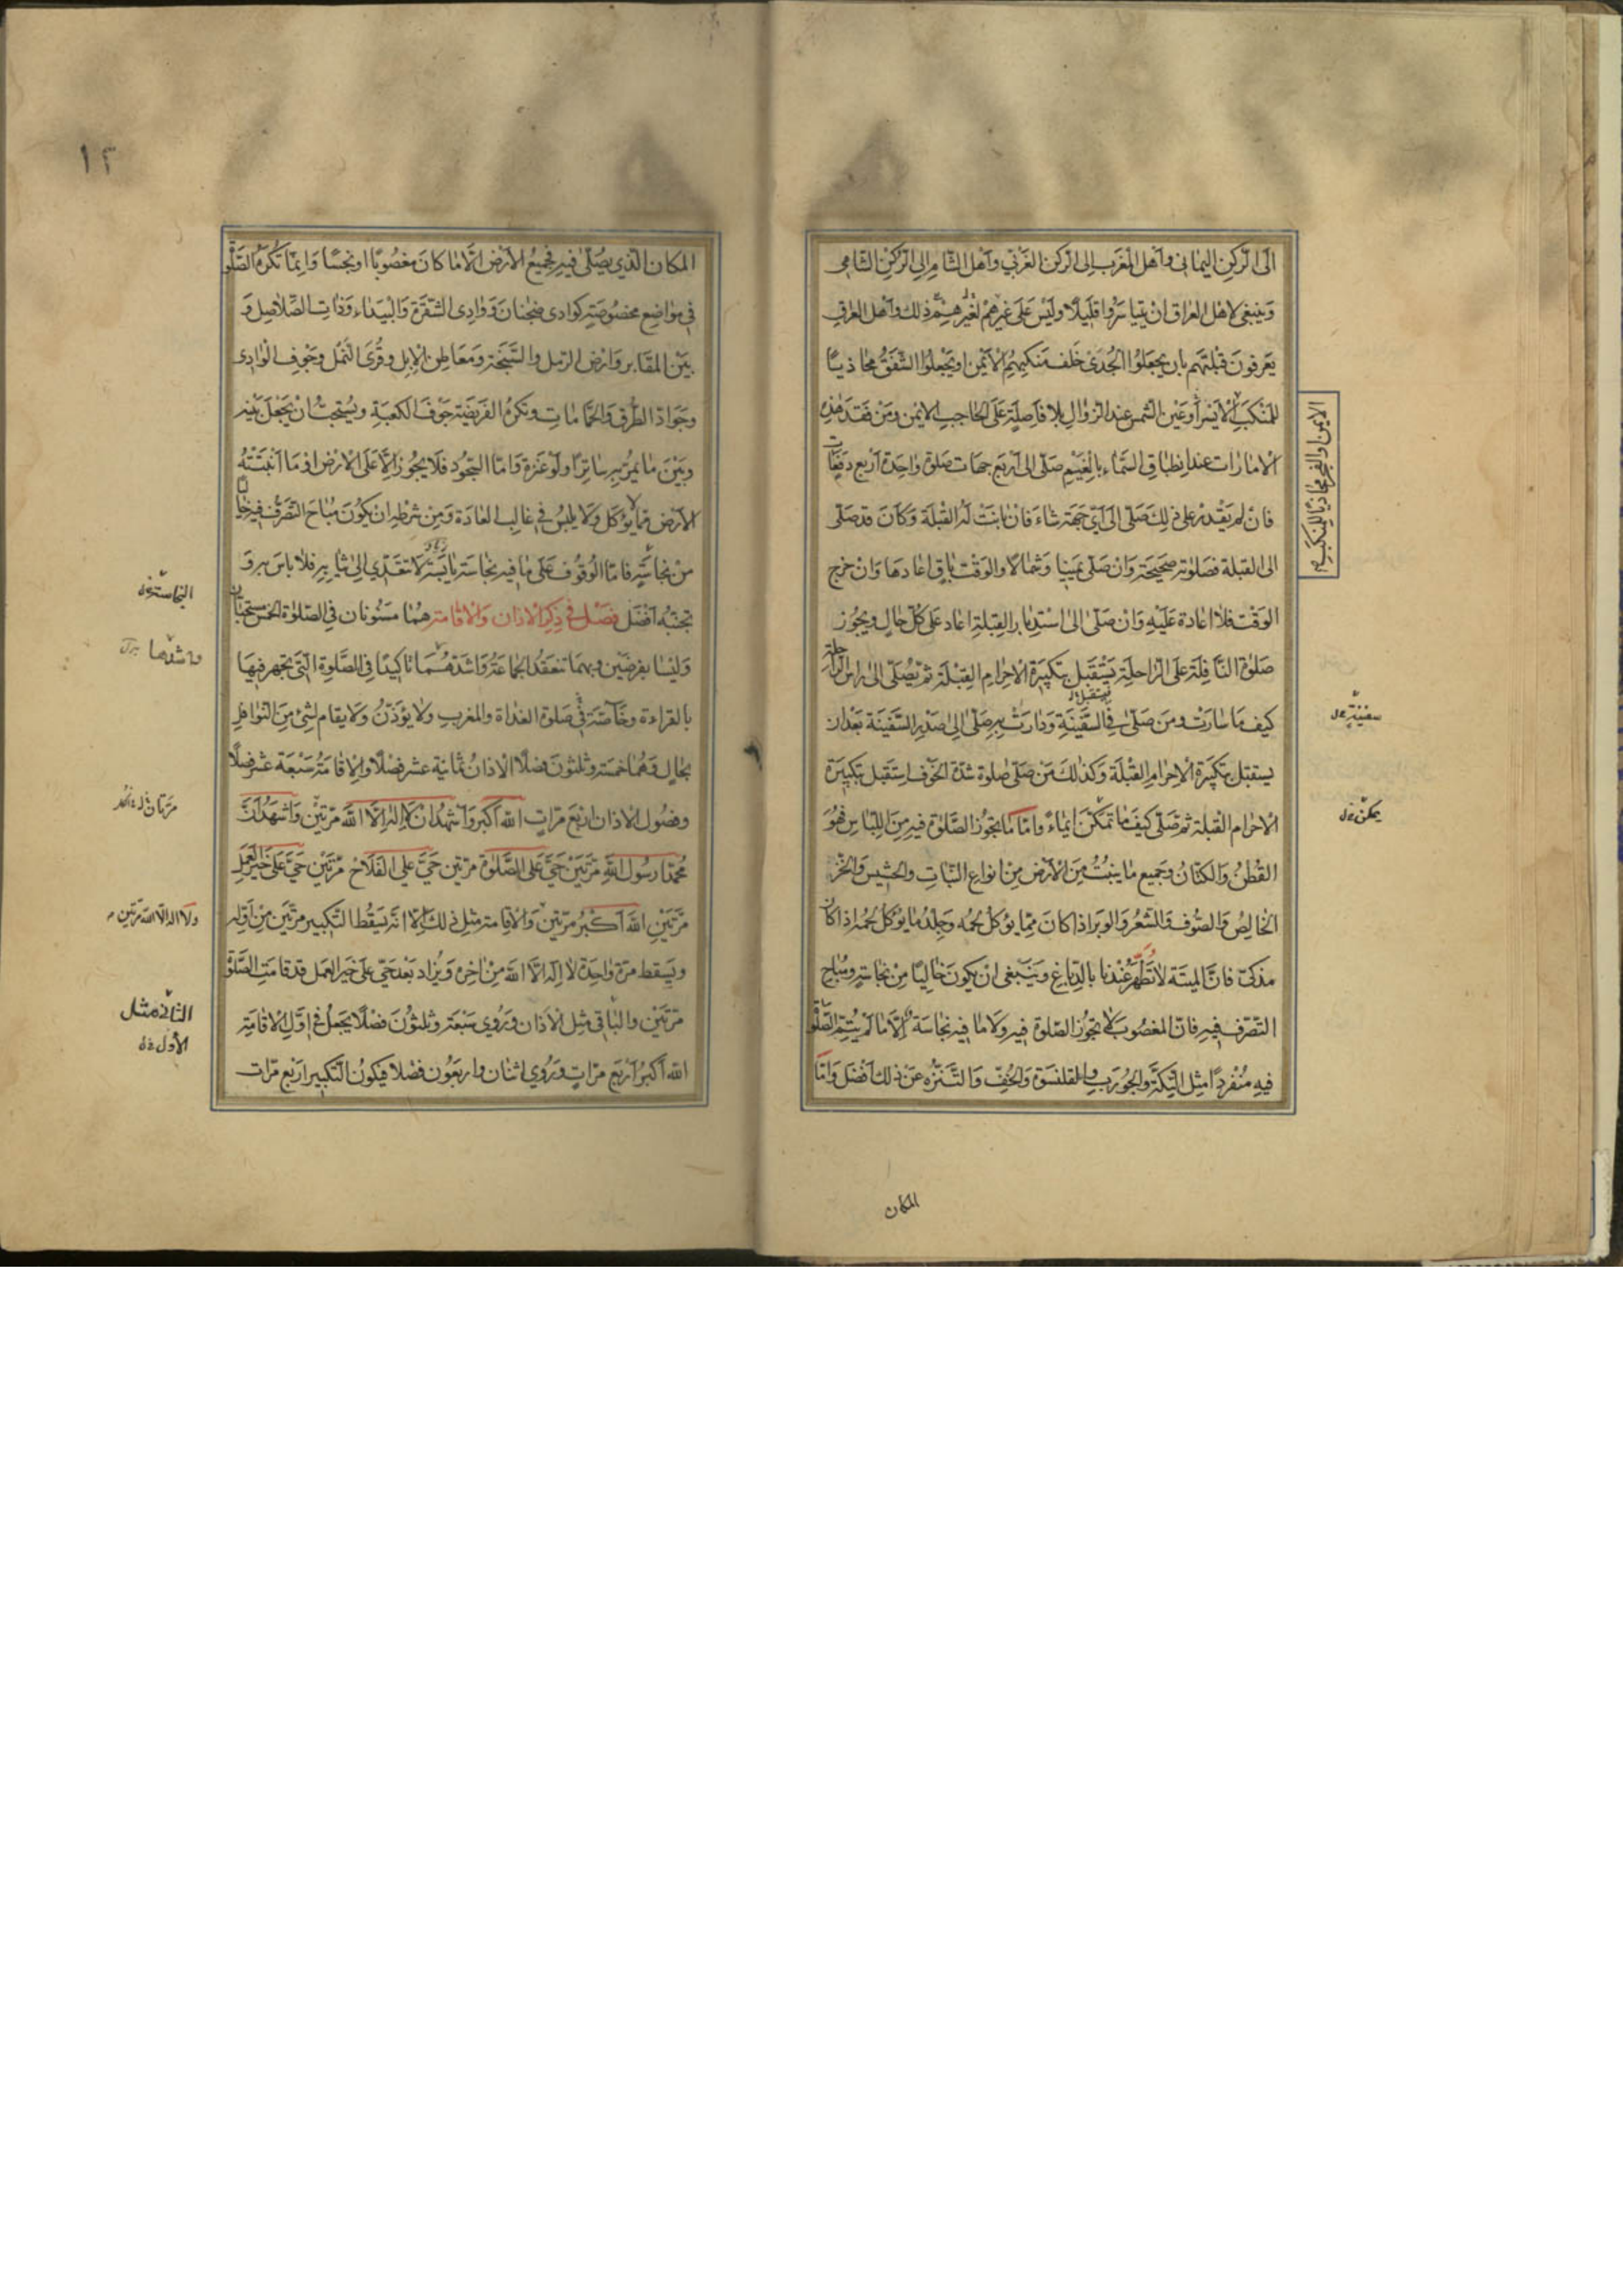 الى الركن اليماني واهل المغرب الى الركن الغربي واهل الشام الى الركن الشامي
وينبغي لاهل العراق ان يتياسروا قليلا وليس على غيرهم ذلك واهل العراق
يعرفون قبلتهم بان يجعلوا الجدي خلف منكبهم الايمن او يجعلوا الشفق محاذيا
للمنكب الايسر او عين الشمس عند الزوال بلا فاصلة على الحاجب الايمن ومن فقد هذه
الامارات عند انطباق السماء بالغيم صلى الى اربع جهات صلوة واحدة اربع دفعات
فان لم يقدر على ذلك صلى الى اي جهة شاء فان بانت له القبلة وكان قد صلى
الى القبلة فصلوته صحيحة وان صلى يمينا وشمالا والوقت باق اعادها وان خرج
الوقت فلا اعادة عليه وان صلى الى استدبار القبلة اعاد على كل حال ويجوز
صلوة النافلة على الراحلة يستقبل بتكبيرة الاحرام القبلة ثم يصلى الى راس الراحلة
كيف ما سارت ومن صلى في السفينة ودارت به صلى الى صدر السفينة بعد ان
يستقبل بتكبيرة الاحرام القبلة وكذلك من صلى صلوة شدة الخوف استقبل بتكبيرة
الاحرام القبلة ثم صلى كيف ما تمكن ايماء واما ما يجوز الصلوة فيه من اللباس فهو
القطن والكتان وجميع ما ينبت من الارض من انواع النبات والحشيش والخز
الخالص والصوف والشعر والوبر اذا كان مما يؤكل لحمه وجلد ما يؤكل لحمه اذا كان
مذكى فان الميتة لا تطهر عندنا بالدباغ وينبغي ان يكون خاليا من نجاسة ومباح
التصرف فيه فان المغصوب لا تجوز الصلوة فيه ولا ما فيه نجاسة الا ما لم يتم الصلوة
فيه منفردا مثل التكة والجورب والقلنسوة والخف والتنزه عن ذلك افضل واما
الايمن والفجر محاذيا للمنكب
سفينة
يمكن
المكان
١٢
المكان الذي يصلى فيه فجميع الارض الا ما كان مغصوبا او نجسا وانما تكره الصلوة
في مواضع مخصوصة كوادي ضجنان ووادي الشقرة والبيداء وذات الصلاصل و
بين المقابر وارض الرمل والسبخة ومعاطن الابل وقرى النمل وجوف الوادي
وجواد الطرق والحمامات وتكره الفريضة جوف الكعبة ويستحب ان يجعل بينه
وبين ما يمر به ساترا ولو عنزة واما السجود فلا يجوز الا على الارض او ما انبتته
الارض مما لا يؤكل ولا يلبس في غالب العادة ومن شرطه ان يكون مباح التصرف فيه خاليا
من نجاسة فاما الوقوف على ما فيه نجاسة يابسة لا تتعدى الى ثيابه فلا باس به و
تجنبه افضل فصل في ذكر الاذان والاقامة هما مسنونان في الصلوة الخمس مستحبان
وليسا بفرضين وبهما تنعقد الجماعة واشدهما تاكيدا في الصلوة التي تجهر فيها
بالقراءة وخاصة في صلوة الغداة والمغرب ولا يؤذن ولا يقام لشئ من النوافل
بحال وهما خمسة وثلثون فصلا الاذان ثمانية عشر فصلا والاقامة سبعة عشر فصلا
وفصول الاذان اربع مرات الله اكبر واشهد ان لا اله الا الله مرتين واشهد ان
محمدا رسول الله مرتين حي على الصلوة مرتين حي على الفلاح مرتين حي على خير العمل
مرتين الله اكبر مرتين والاقامة مثل ذلك الا انه يسقط التكبير مرتين من اوله
ويسقط مرة واحدة لا اله الا الله من اخره ويزاد بعد حي على خير العمل قد قامت الصلوة
مرتين والباقي مثل الاذان وروي سبعة وثلثون فصلا يجعل في اول الاقامة
الله اكبر اربع مرات وروي اثنان واربعون فصلا فيكون التكبير اربع مرات
النجاسة
واشدهما
ولا اله الا الله مرتين
الثاني مثل
الأول